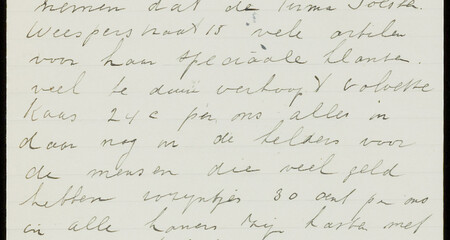 nemen dat de firma
Weesperstraat 15 vele artikelen
voor haar speciaale klanten
veel te duur verkoopt volvette
Kaas 24 c per ons alles in
daar nog in de kelders voor
de mensen die veel geld
hebben rozyntjes 30 cent per ons
in alle hoeken zijn kasten met